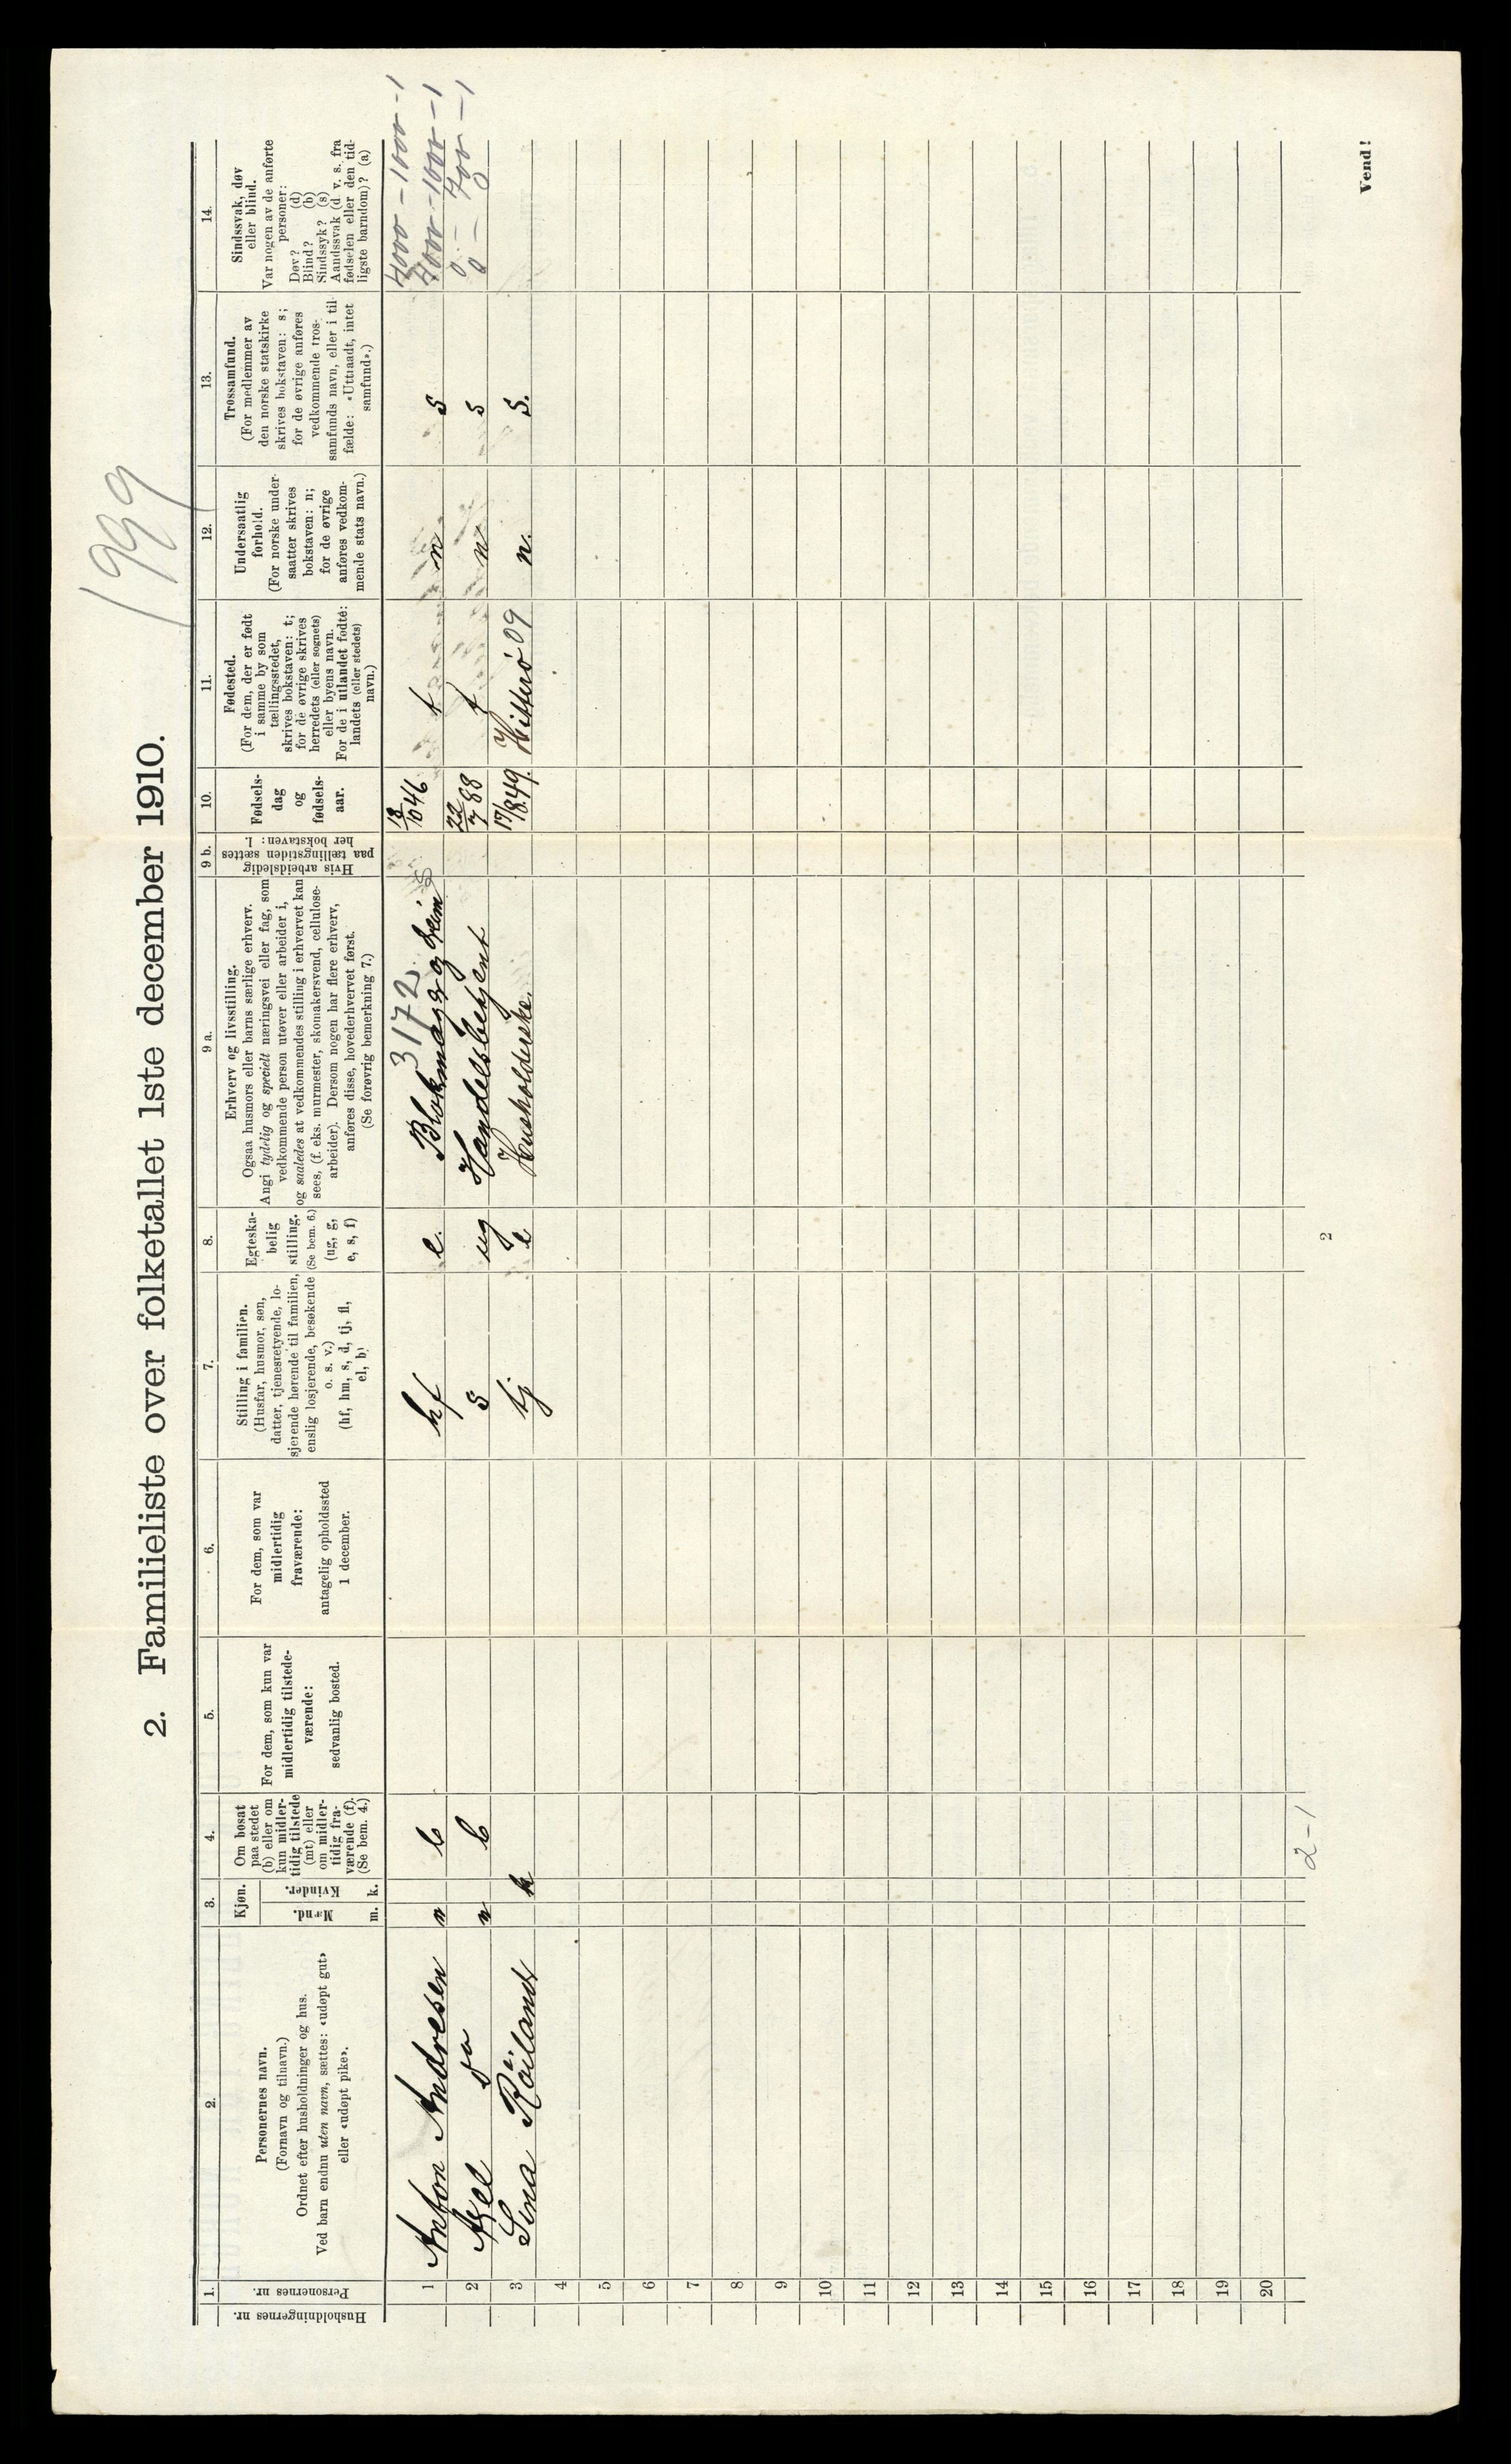 199
2. Familieliste over folketallet 1ste december 1910.
1.
Husholdningernes nr.
Personernes nr.
2.
Personernes navn.
(Fornavn og tilnavn.)
Ordnet efter husholdninger og hus.
Ved barn endnu uten navn, sættes: «udøpt gut»
eller «udøpt pike».
3.
Kjøn.
Mænd.
Kvinder.
m. k.
4.
Om bosat
paa stedet
(b) eller om
kun midler-
tidig tilstede
(mt) eller
om midler-
tidig fra-
værende (f).
(Se bem. 4.)
5.
For dem, som kun var
midlertidig tilstede-
værende:
sedvanlig bosted.
6.
For dem, som var
midlertidig
fraværende:
antagelig opholdssted
1 december.
7.
Stilling i familien.
(Husfar, husmor, søn,
datter, tjenestetyende, lo-
sjerende hørende til familien,
enslig losjerende, besøkende
o. s. v.)
(hf, hm, s, d, tj, fl,
el, b)
8.
Egteska-
belig
stilling.
(Se bem. 6.)
(ug, g,
e, s, f)
9 a.
Erhverv og livsstilling.
Ogsaa husmors eller barns særlige erhverv.
Angi tydelig og specielt næringsvei eller fag, som
vedkommende person utøver eller arbeider i,
og saaledes at vedkommendes stilling i erhvervet kan
sees, (f. eks. murmester, skomakersvend, cellulose-
arbeider). Dersom nogen har flere erhverv,
anføres disse, hovederhvervet først.
(Se forøvrig bemerkning 7.)
9 b.
Hvis arbeidsledig
paa tællingstiden sættes
her bokstaven: l.
10.
Fødsels-
dag
og
fødsels-
aar.
11.
Fødested.
(For dem, der er født
i samme by som
tællingsstedet,
skrives bokstaven: t;
for de øvrige skrives
herredets (eller sognets)
eller byens navn.
For de i utlandet fødte:
landets (eller stedets)
navn.)
12.
Undersaatlig
forhold.
(For norske under-
saatter skrives
bokstaven: n;
for de øvrige
anføres vedkom-
mende stats navn.)
13.
Trossamfund.
(For medlemmer av
den norske statskirke
skrives bokstaven: s;
for de øvrige anføres
vedkommende tros-
samfunds navn, eller i til-
fælde: «Uttraadt, intet
samfund».)
14.
Sindssvak, døv
eller blind.
Var nogen av de anførte
personer:
Døv? (d)
Blind? (b)
Sindssyk? (s)
Aandssvak (d. v. s. fra
fødselen eller den tid-
ligste barndom)? (a)
3172
4000 - 1000 - 1
1 Anton Andresen m b hf e. Blokmager og 18/10 46 t n s 4000 - 1000 - 1
2 Axel do m b s ug Handelsbetjent 22/7 88 t n s 0 - 700 - 1
3 Sina Röiland k tj e Husholderske. 17/8 49. Hitterö 09 n. s.
4
5
6
7
8
9
10
11
12
13
14
15
16
17
18
19
20
2-1
2
Vend!